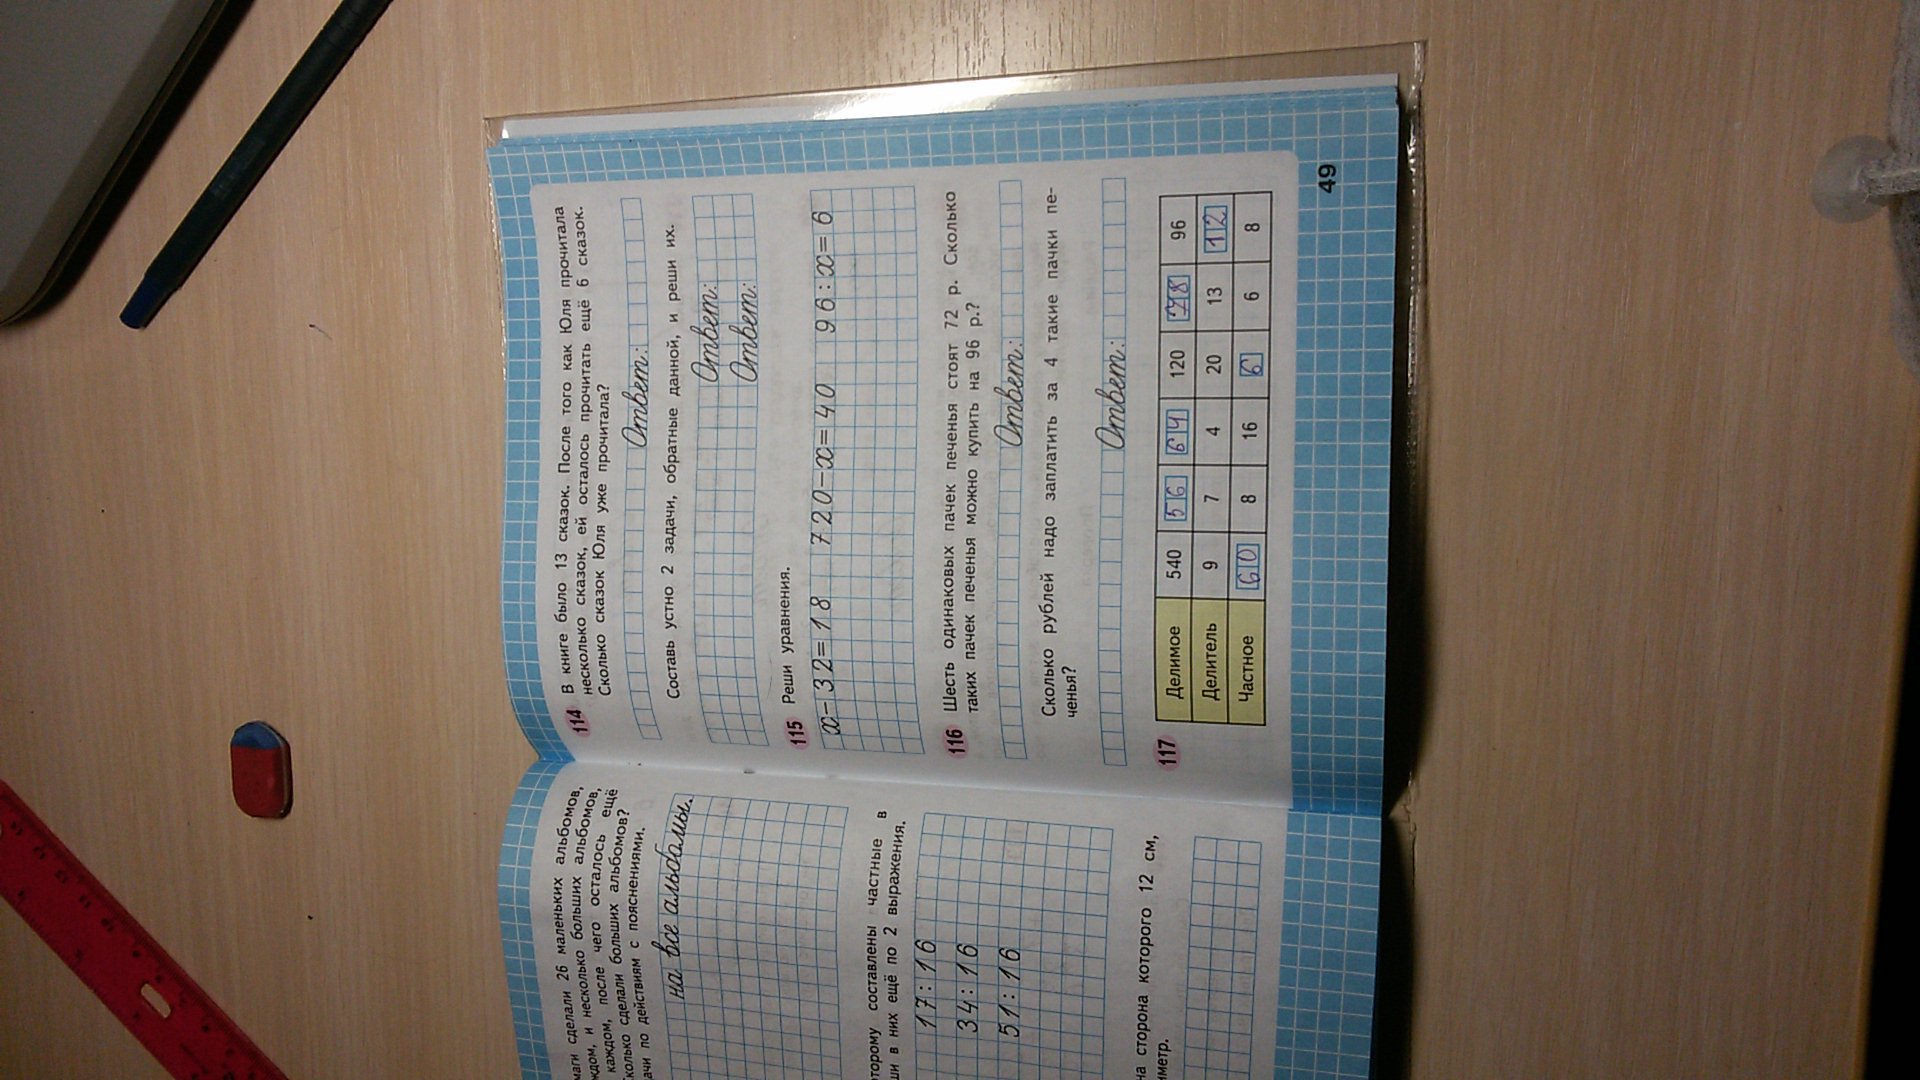 маги сделали 26 маленьких альбомов,
ждом, и несколько больших альбомов,
каждом, после чего осталось ещё
колько сделали больших альбомов?
ачи по действиям с пояснениями.
на все альбомы.
оторому составлены частные в
ши в них ещё по 2 выражения.
17:16
34:16
51:16
на сторона которого 12 см,
иметр.
114 В книге было 13 сказок. После того как Юля прочитала
несколько сказок, ей осталось прочитать ещё 6 сказок.
Сколько сказок Юля уже прочитала?
Ответ:
Составь устно 2 задачи, обратные данной, и реши их.
Ответ:
Ответ:
115 Реши уравнения.
x-32=18 720-x=40 96:x=6
116 Шесть одинаковых пачек печенья стоят 72 р. Сколько
таких пачек печенья можно купить на 96 р.?
Ответ:
Сколько рублей надо заплатить за 4 такие пачки пе-
ченья?
Ответ:
117
Делимое 540 56 64 120 78 96
Делитель 9 7 4 20 13 12
Частное 60 8 16 6 6 8
49